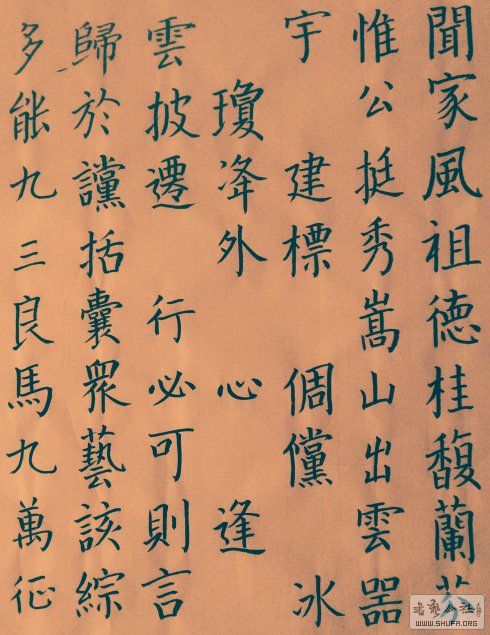 聞家風祖德桂馥蘭
惟公挺秀嵩山出雲器
宇 建標 倜儻 冰
瓊 外 心 逢
雲披遷 行必可則言
歸於讜括囊眾藝該綜
多能九三良馬九萬征
书艺公社
WWW.SHUFA.ORG